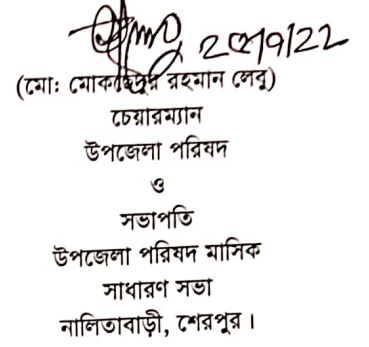 ২৫/৭/২২
(মো: মোকছেদুর রহমান লেবু)
চেয়ারম্যান
উপজেলা পরিষদ
ও
সভাপতি
উপজেলা পরিষদ মাসিক
সাধারণ সভা
নালিতাবাড়ী, শেরপুর।